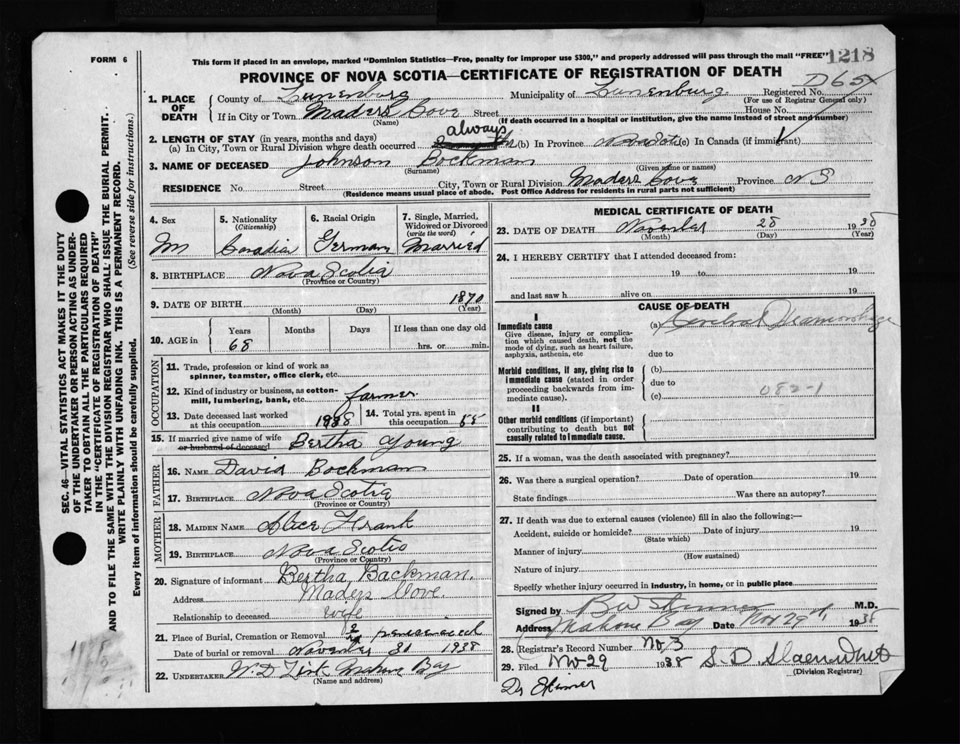 FORM 6
This form if placed in an envelope, marked "Dominion Statistics—Free, penalty for improper use $300," and properly addressed will pass through the mail "FREE"
1218
PROVINCE OF NOVA SCOTIA—CERTIFICATE OF REGISTRATION OF DEATH
1. PLACE OF DEATH County of Lunenburg Municipality of Lunenburg Registered No. D65
(For use of Registrar General only)
If in City or Town Maders Cove Street House No.
(Name) (If death occurred in a hospital or institution, give the name instead of street and number)
2. LENGTH OF STAY (in years, months and days) always
(a) In City, Town or Rural Division where death occurred (b) In Province Nova Scotia (c) In Canada (if immigrant)
3. NAME OF DECEASED Johnson Bockman
(Surname) (Given name or names)
RESIDENCE No. Street City, Town or Rural Division Maders Cove Province N S
(Residence means usual place of abode. Post Office Address for residents in rural parts not sufficient)
4. Sex M
5. Nationality (Citizenship) Canadia
6. Racial Origin German
7. Single, Married, Widowed or Divorced (write the word) Married
8. BIRTHPLACE Nova Scotia
(Province or Country)
9. DATE OF BIRTH 1870
(Month) (Day) (Year)
10. AGE in Years Months Days If less than one day old
68 hrs. or min.
OCCUPATION
11. Trade, profession or kind of work as spinner, teamster, office clerk, etc.
12. Kind of industry or business, as cotton-mill, lumbering, bank, etc. farmer
13. Date deceased last worked at this occupation 1938
14. Total yrs. spent in this occupation 55
15. If married give name of wife or husband of deceased Bertha Young
FATHER
16. NAME David Bockman
17. BIRTHPLACE Nova Scotia
(Province or Country)
MOTHER
18. MAIDEN NAME Alice Frank
19. BIRTHPLACE Nova Scotia
(Province or Country)
20. Signature of informant Bertha Backman.
Address Maders Cove
Relationship to deceased wife
21. Place of Burial, Cremation or Removal
Date of burial or removal November 30 1938
22. UNDERTAKER W. D. Zink Mahone Bay
(Name and address)
MEDICAL CERTIFICATE OF DEATH
23. DATE OF DEATH November 28 1938
(Month) (Day) (Year)
24. I HEREBY CERTIFY that I attended deceased from:
19 to 19
and last saw h alive on 19
CAUSE OF DEATH
I
Immediate cause
Give disease, injury or complication which caused death, not the mode of dying, such as heart failure, asphyxia, asthenia, etc
(a) Cerebral Heamorrhage
due to
Morbid conditions, if any, giving rise to immediate cause (stated in order proceeding backwards from immediate cause).
(b)
due to
(c) 082-1
II
Other morbid conditions (if important) contributing to death but not causally related to immediate cause.
25. If a woman, was the death associated with pregnancy?
26. Was there a surgical operation? Date of operation 19
State findings Was there an autopsy?
27. If death was due to external causes (violence) fill in also the following:—
Accident, suicide or homicide? Date of injury 19
(State which)
Manner of injury
(How sustained)
Nature of injury
Specify whether injury occurred in industry, in home, or in public place
Signed by M.D.
Address Mahone Bay Date Nov 29th 1938
28. Registrar's Record Number No 3
29. Filed Nov 29 1938
(Division Registrar)
Dr Skinner
SEC. 46—VITAL STATISTICS ACT MAKES IT THE DUTY
OF THE UNDERTAKER OR PERSON ACTING AS UNDERTAKER TO OBTAIN ALL THE PARTICULARS REQUIRED
IN THE "CERTIFICATE OF REGISTRATION OF DEATH"
AND TO FILE THE SAME WITH THE DIVISION REGISTRAR WHO SHALL ISSUE THE BURIAL PERMIT.
WRITE PLAINLY WITH UNFADING INK. THIS IS A PERMANENT RECORD.
Every item of information should be carefully supplied. (See reverse side for instructions.)